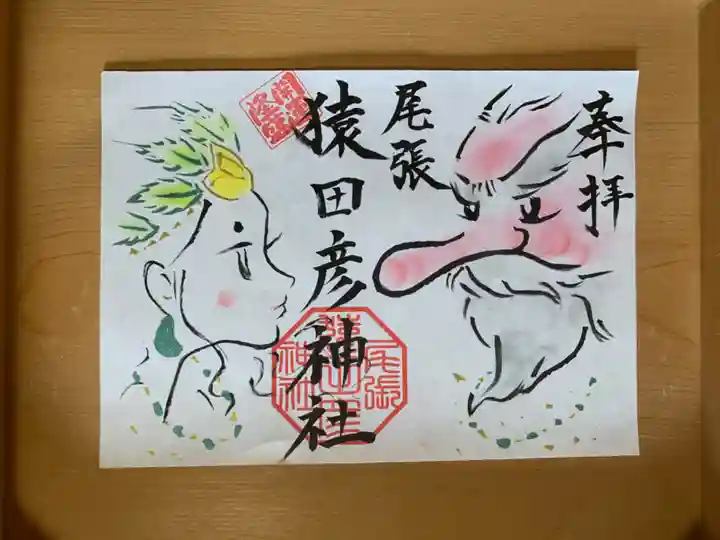 奉拝
尾張
猿田彦神社
尾張
猿田彦
神社